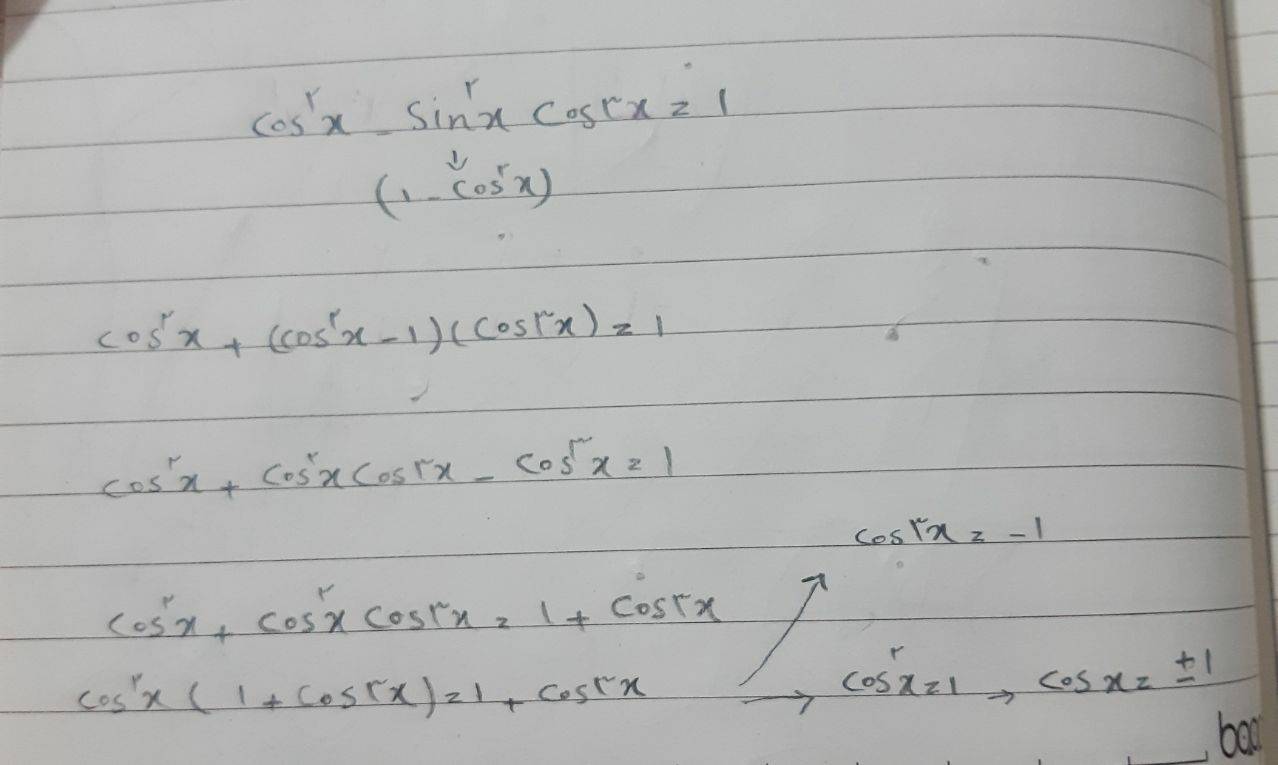 cos^۲x - sin^۲x cos۳x = 1
↓
(۱ - cos^۲x)
cos^۲x + (cos^۲x - 1)(cos۳x) = 1
cos^۲x + cos^۲x cos۳x - cos۳x = 1
cos۳x = -1
cos^۲x + cos^۲x cos۳x = 1 + cos۳x
cos^۲x (1 + cos۳x) = 1 + cos۳x → cos^۲x = 1 → cosx = ±1